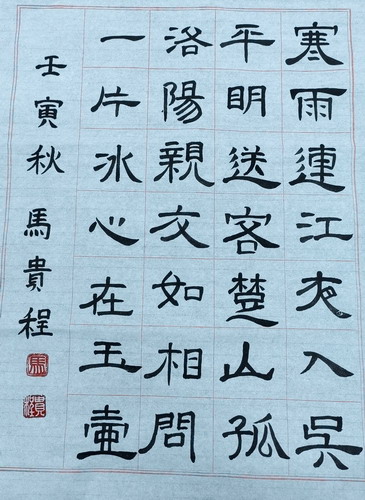 寒雨連江夜入吳
平明送客楚山孤
洛陽親友如相問
一片冰心在玉壺
壬寅秋 馬貴程